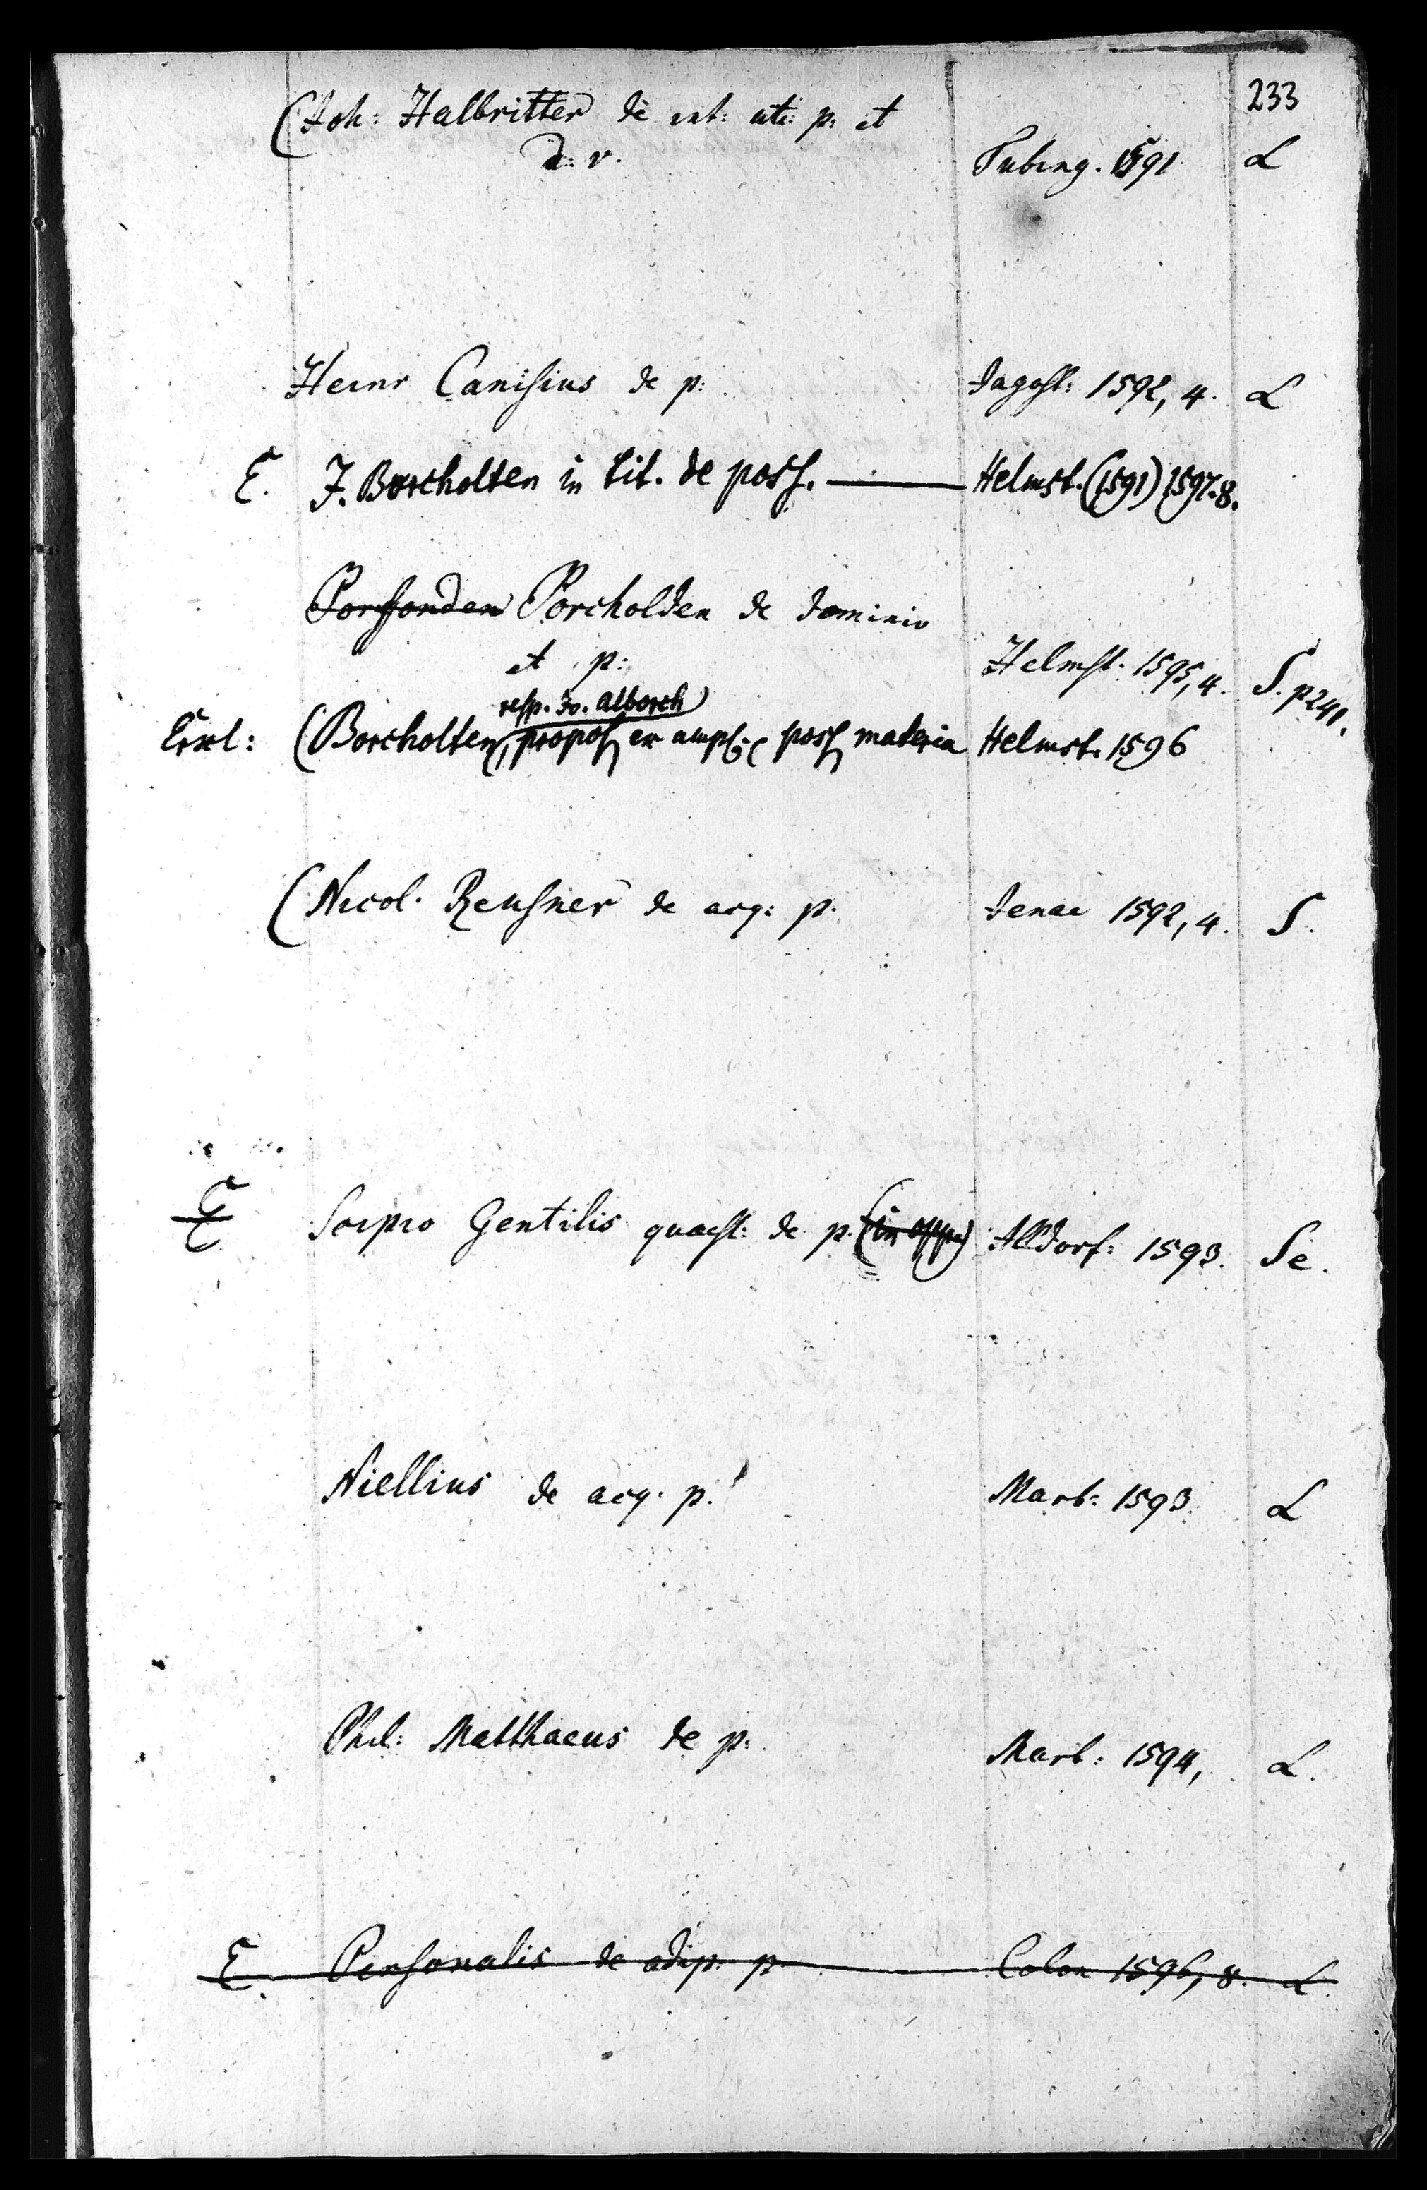 233
(Joh: Halbritter de int: uti: p: et
d: v. Tubing. 1591 L
Heinr Canisius de p: Ingost: 1592, 4. L
E. J. Borcholten in tit. de poss. — Helmst. (1591) 1597. 8.
Porcholden de dominio
et p: Helmst. 1595, 4. S. p 241.
resp. Jo. Alborch
Erxl: (Borcholten, propos ex ampl: poss materia Helmst. 1596
(Nicol. Reusner de acq: p. Jenae 1592, 4. S.
E Scipio Gentilis quaest: de p. Altdorf: 1593. Se.
Niellius de acq. p. Marb: 1593. L
Phil: Matthaeus de p: Marb: 1594, L.
E. Personalis de adip. p. Colon 1596, 8. L.